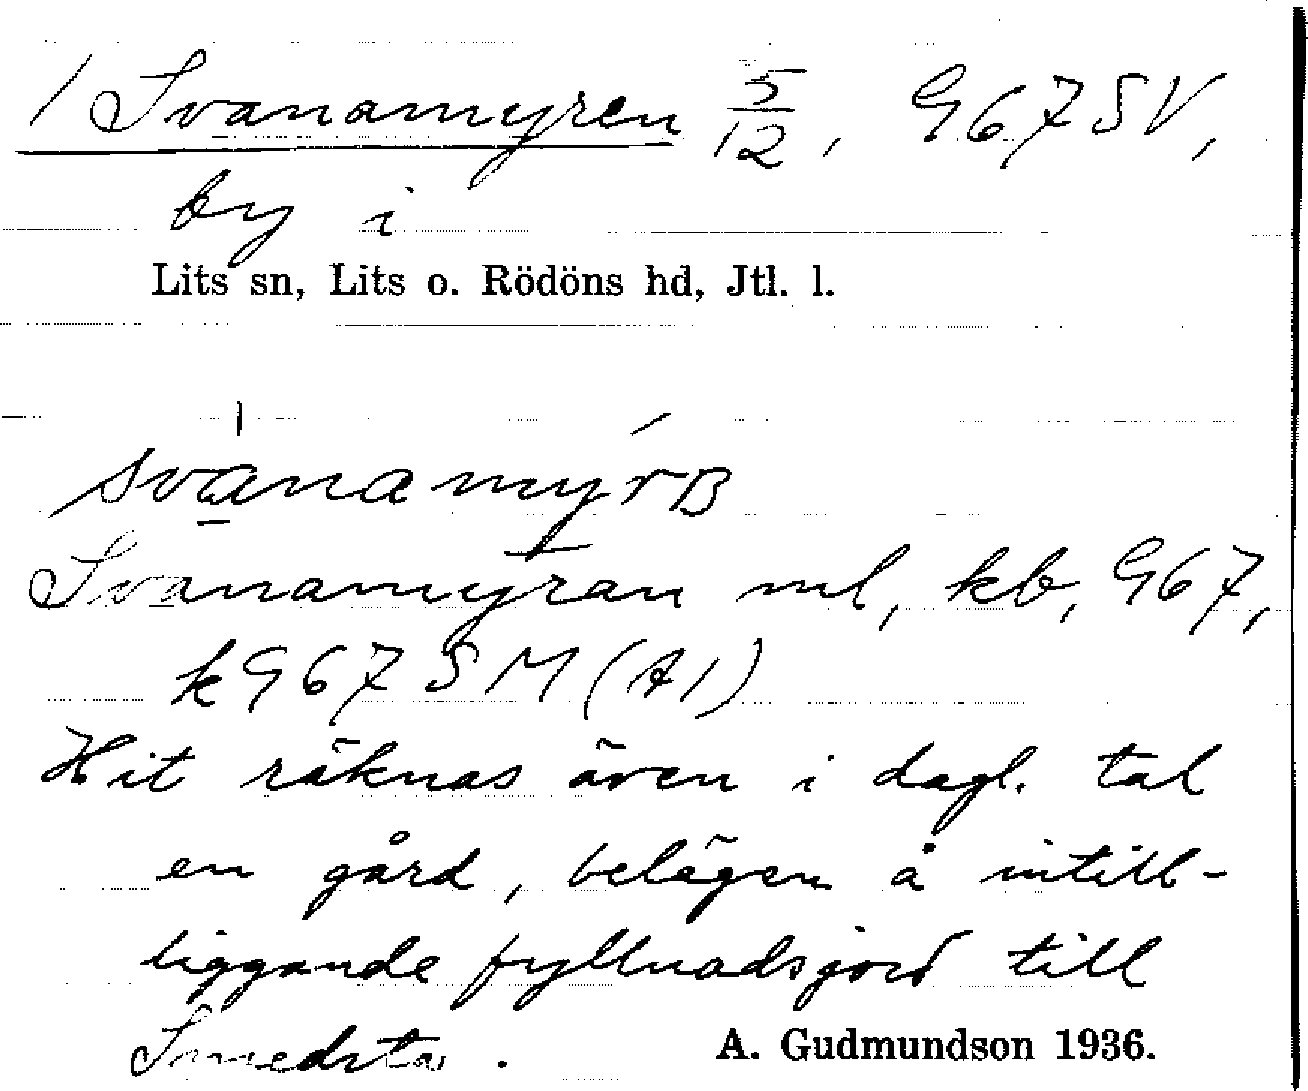 / Svanamyren 5/12, G67SV,
by i
Lits sn, Lits o. Rödöns hd, Jtl. l.
svana myrB
Svanamyran ml, kb, G67,
kG67SM(A1)
Hit räknas även i dagl. tal
en gård, belägen å intill-
liggande fyllnadsjord till
Smedsta.
A. Gudmundson 1936.